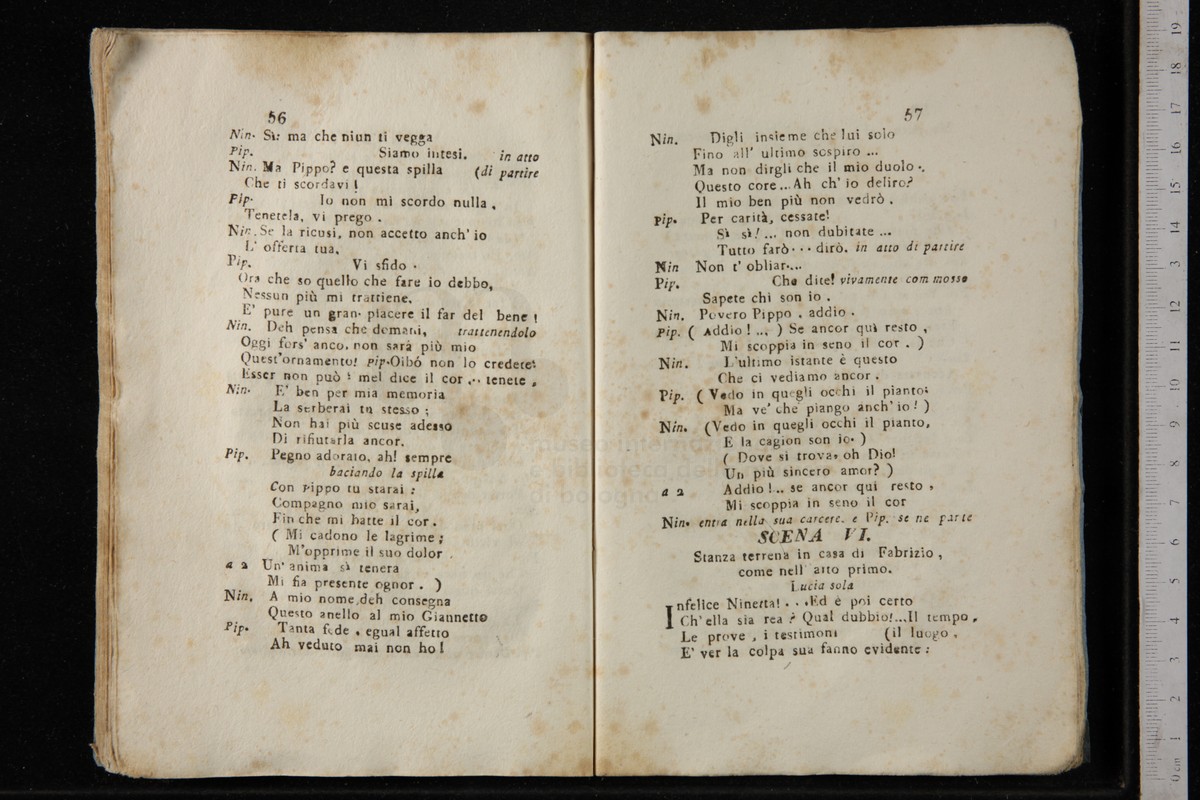 56
Nin. Sì: ma che niun ti vegga
Pip. Siamo intesi. in atto
Nin. Ma Pippo? e questa spilla (di partire
Che ti scordavi!
Pip. Io non mi scordo nulla,
Tenetela, vi prego.
Nin. Se la ricusi, non accetto anch' io
L' offerta tua.
Pip. Vi sfido.
Ora che so quello che fare io debbo,
Nessun più mi trattiene.
E' pure un gran piacere il far del bene!
Nin. Deh pensa che domani, trattenendolo
Oggi fors' anco, non sará più mio
Quest'ornamento! Pip. Oibó non lo credete:
Esser non può: mel dice il cor ... tenete,
Nin. E' ben per mia memoria
La serberai tu stesso;
Non hai più scuse adesso
Di rifiutarla ancor.
Pip. Pegno adorato, ah! sempre
baciando la spilla
Con Pippo tu starai:
Compagno mio sarai,
Fin che mi batte il cor.
( Mi cadono le lagrime;
M'opprime il suo dolor.
a 2 Un' anima sì tenera
Mi fia presente ognor. )
Nin. A mio nome, deh consegna
Questo anello al mio Giannetto
Pip. Tanta fede, egual affetto
Ah veduto mai non ho!
57
Nin. Digli insieme che lui solo
Fino all' ultimo sospiro ...
Ma non dirgli che il mio duolo..
Questo core ... Ah ch' io deliro?
Il mio ben più non vedrò.
Pip. Per carità, cessate!
Sì sì! ... non dubitate ...
Tutto farò... dirò. in atto di partire
Nin Non t' obliar....
Pip. Che dite! vivamente commosso
Sapete chi son io.
Nin. Povero Pippo, addio.
Pip. ( Addio! ... ) Se ancor quì resto,
Mi scoppia in seno il cor. )
Nin. L'ultimo istante è questo
Che ci vediamo ancor.
Pip. ( Vedo in quegli occhi il pianto:
Ma ve' che piango anch' io! )
Nin. (Vedo in quegli occhi il pianto,
E la cagion son io. )
( Dove si trova, oh Dio!
Un più sincero amor? )
a 2 Addio!.. se ancor qui resto,
Mi scoppia in seno il cor
Nin. entra nella sua carcere, e Pip. se ne parte
SCENA VI.
Stanza terrena in casa di Fabrizio,
come nell' atto primo.
Lucia sola
Infelice Ninetta! . . . Ed é poi certo
Ch' ella sia rea? Qual dubbio!...Il tempo,
Le prove, i testimoni (il luogo,
E' ver la colpa sua fanno evidente: